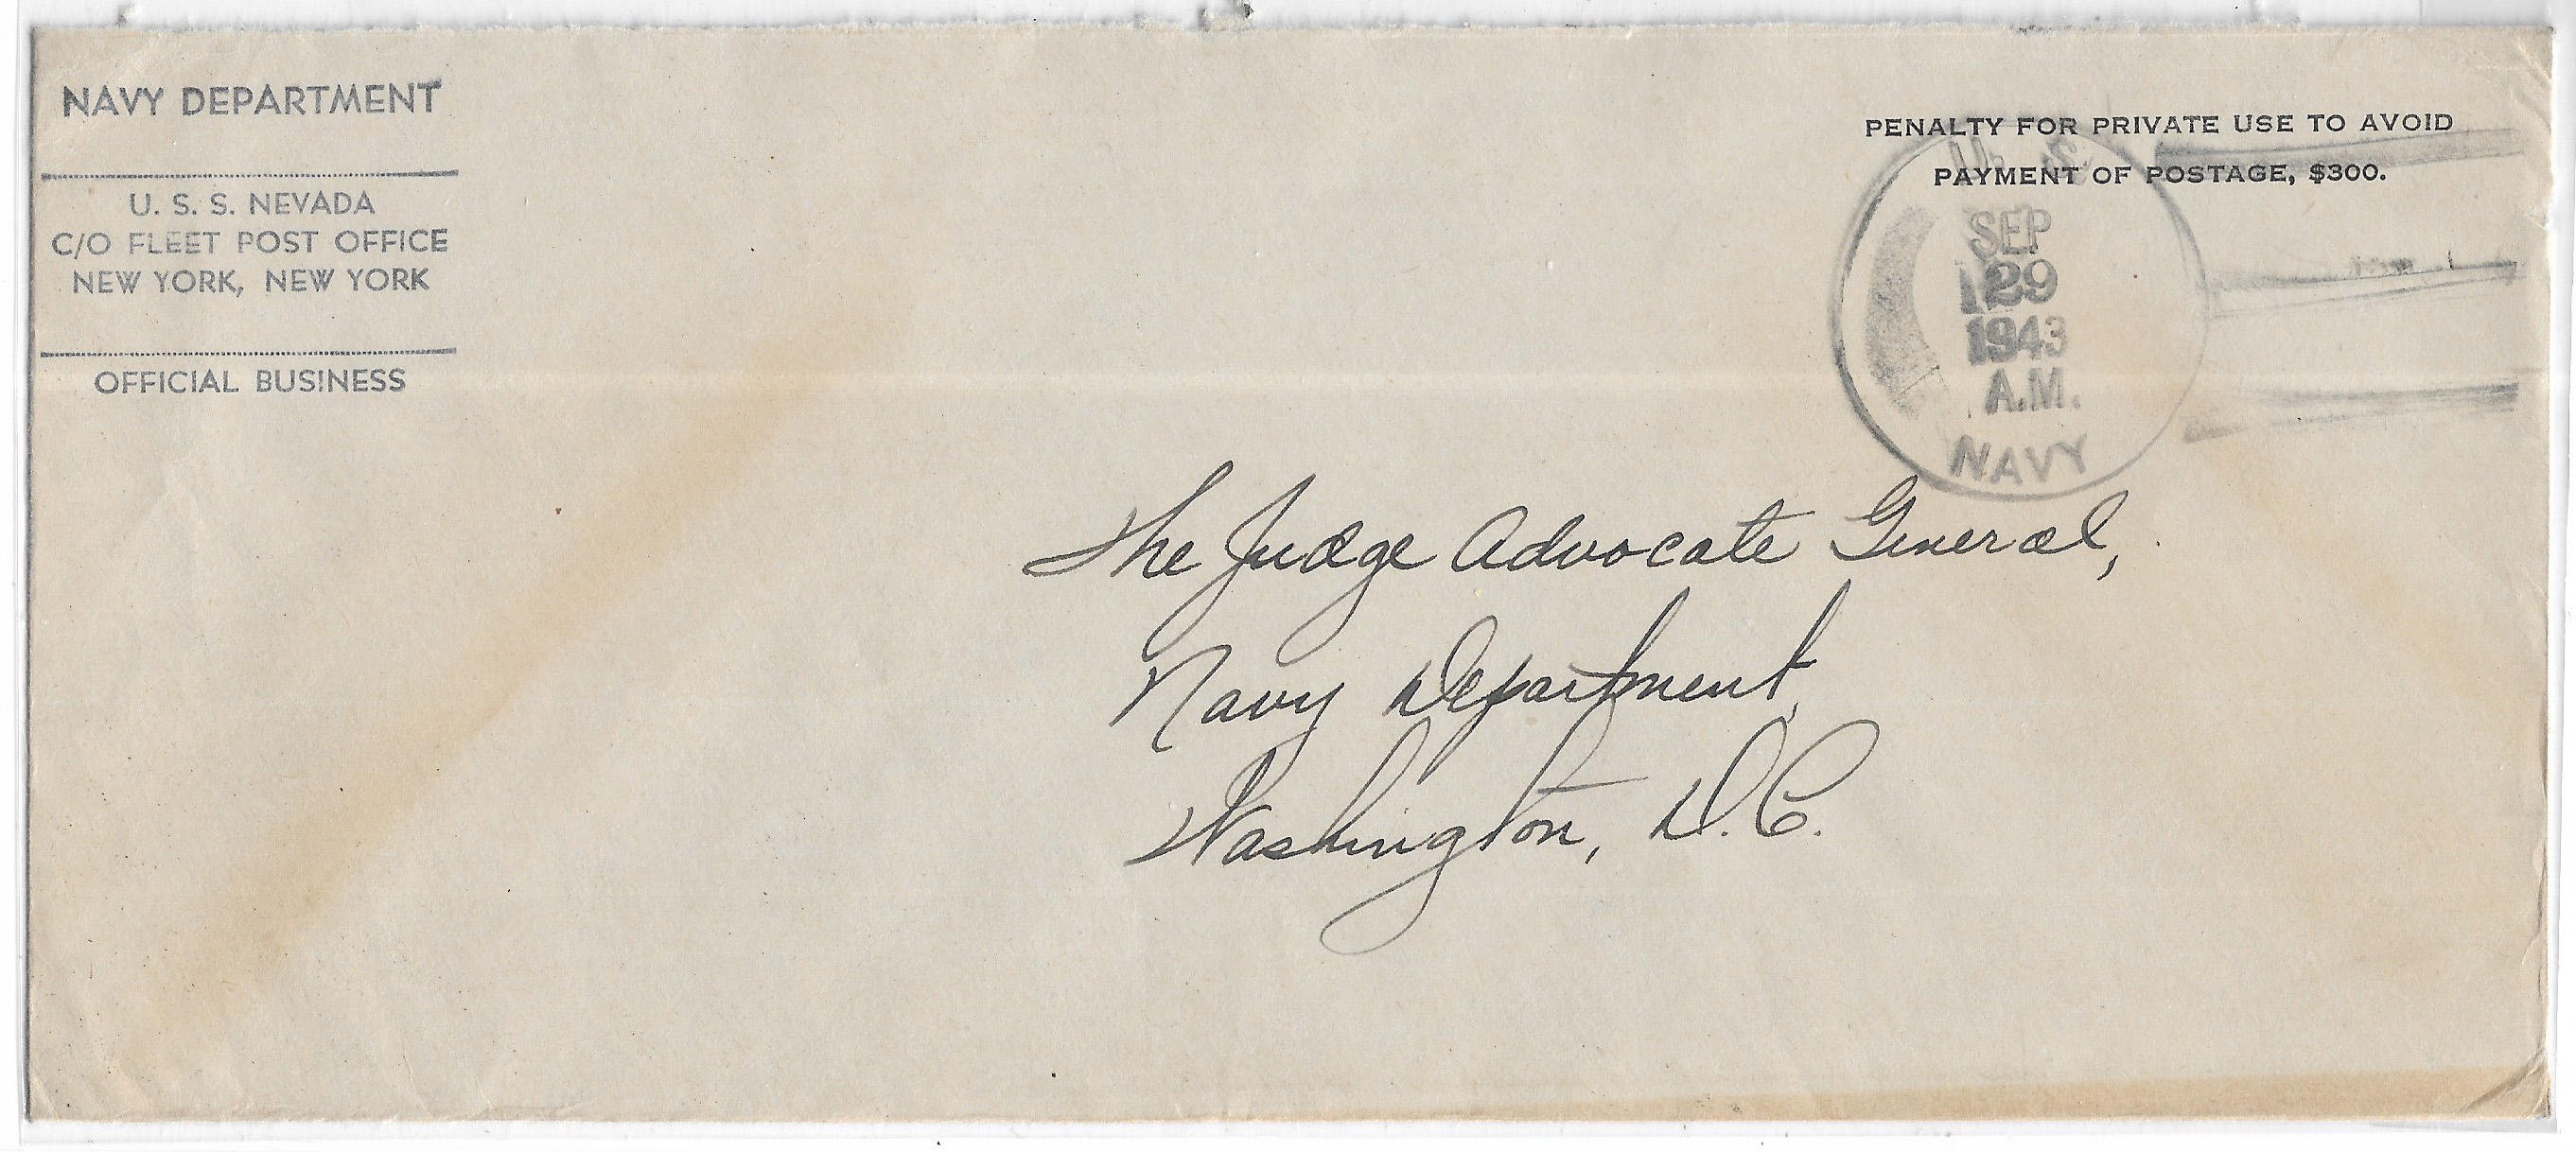 NAVY DEPARTMENT
U. S. S. NEVADA
C/O FLEET POST OFFICE
NEW YORK, NEW YORK
OFFICIAL BUSINESS
PENALTY FOR PRIVATE USE TO AVOID
PAYMENT OF POSTAGE, $300.
U. S.
SEP
29
1943
A.M.
NAVY
The Judge Advocate General,
Navy Department,
Washington, D.C.